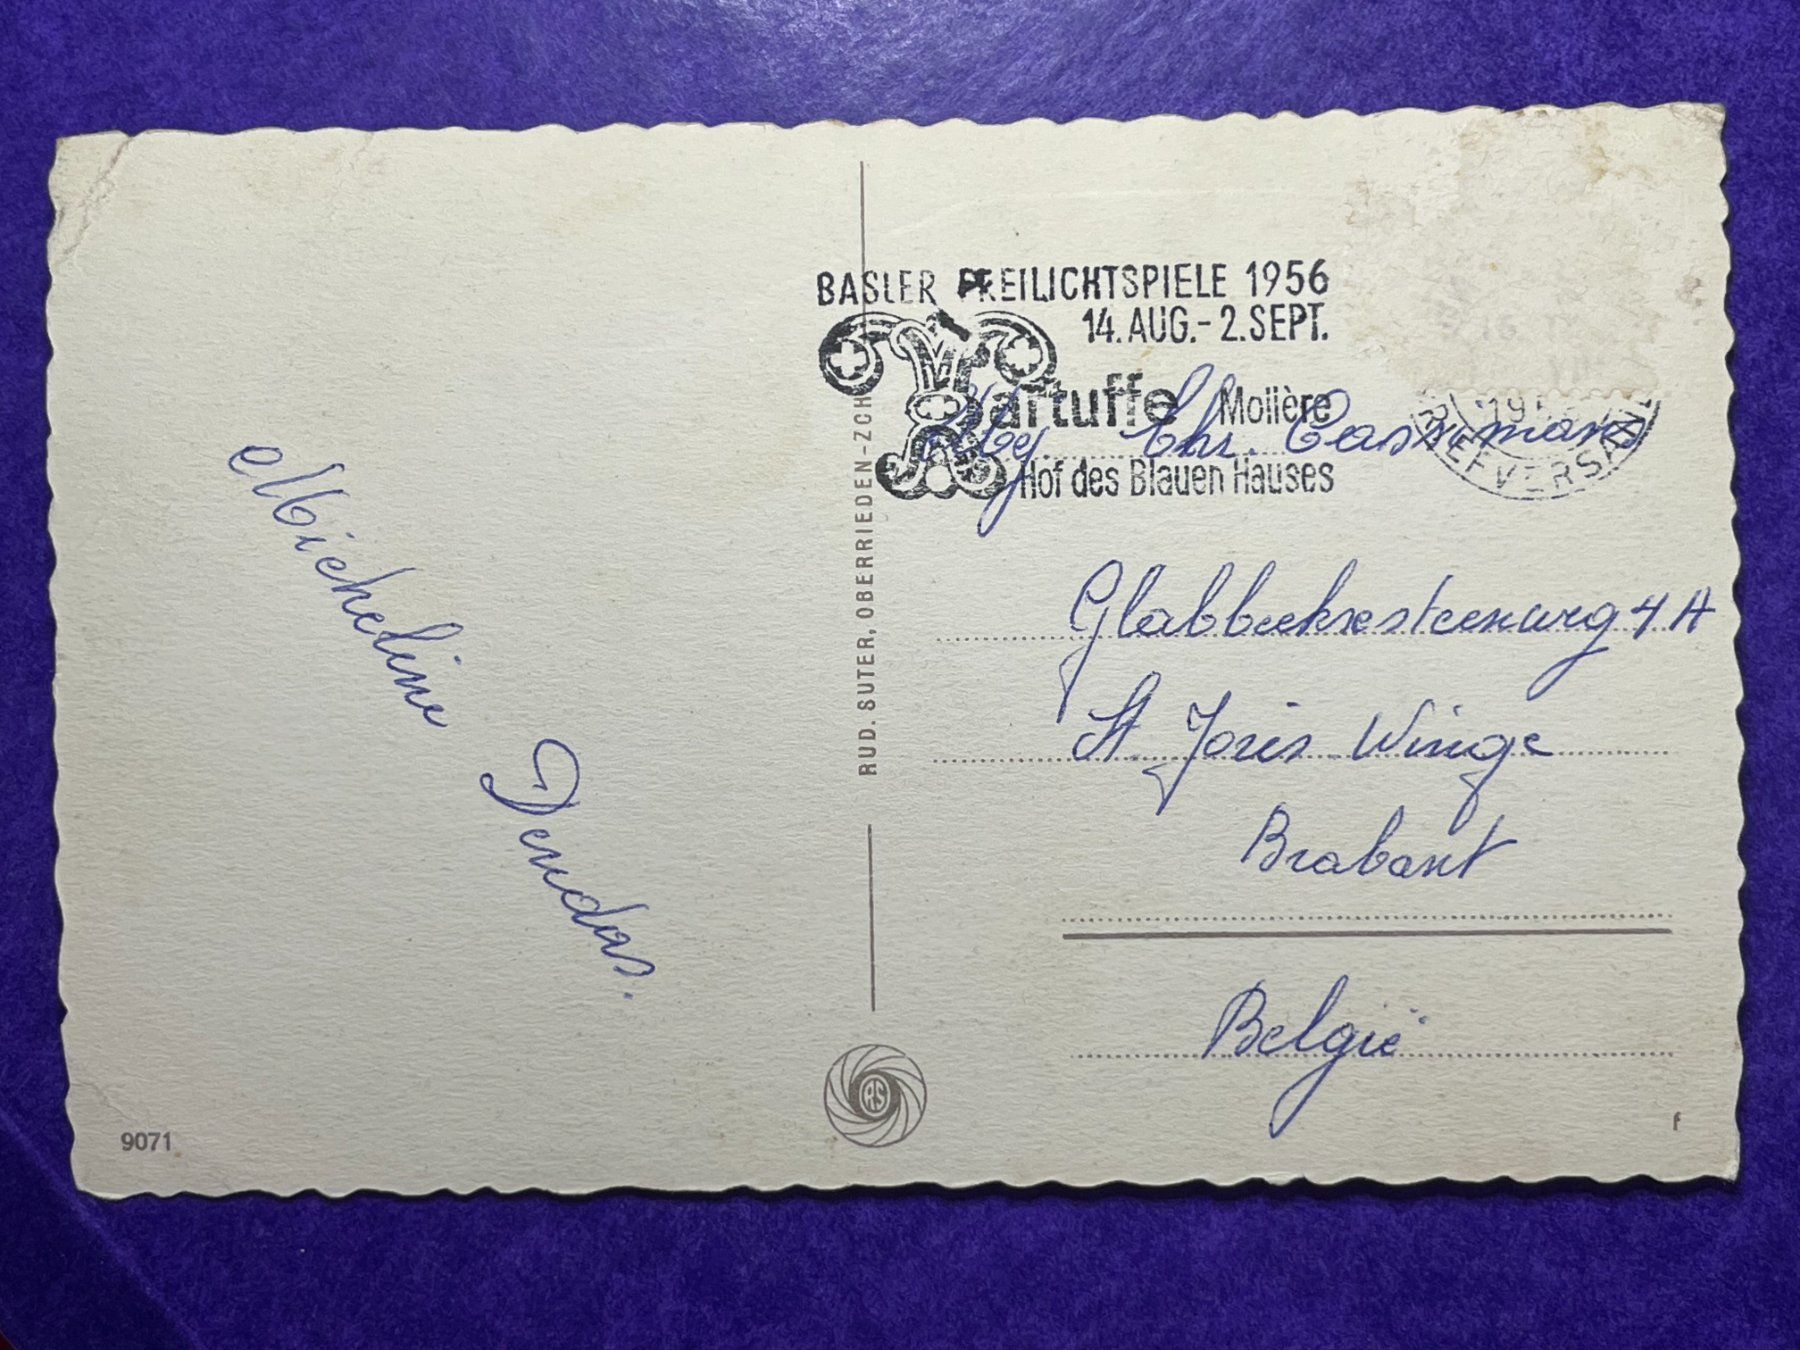 Micheline Dendas.
9071
RUD. SUTER, OBERRIEDEN-ZCH
RS
BASLER FREILICHTSPIELE 1956
14. AUG. - 2. SEPT.
Tartuffe Molière
Hof des Blauen Hauses
BRIEFVERSAND
Mej. Chr. Cassimans
Glabbeeksesteenweg 4A
St Joris Winge
Brabant
België
f